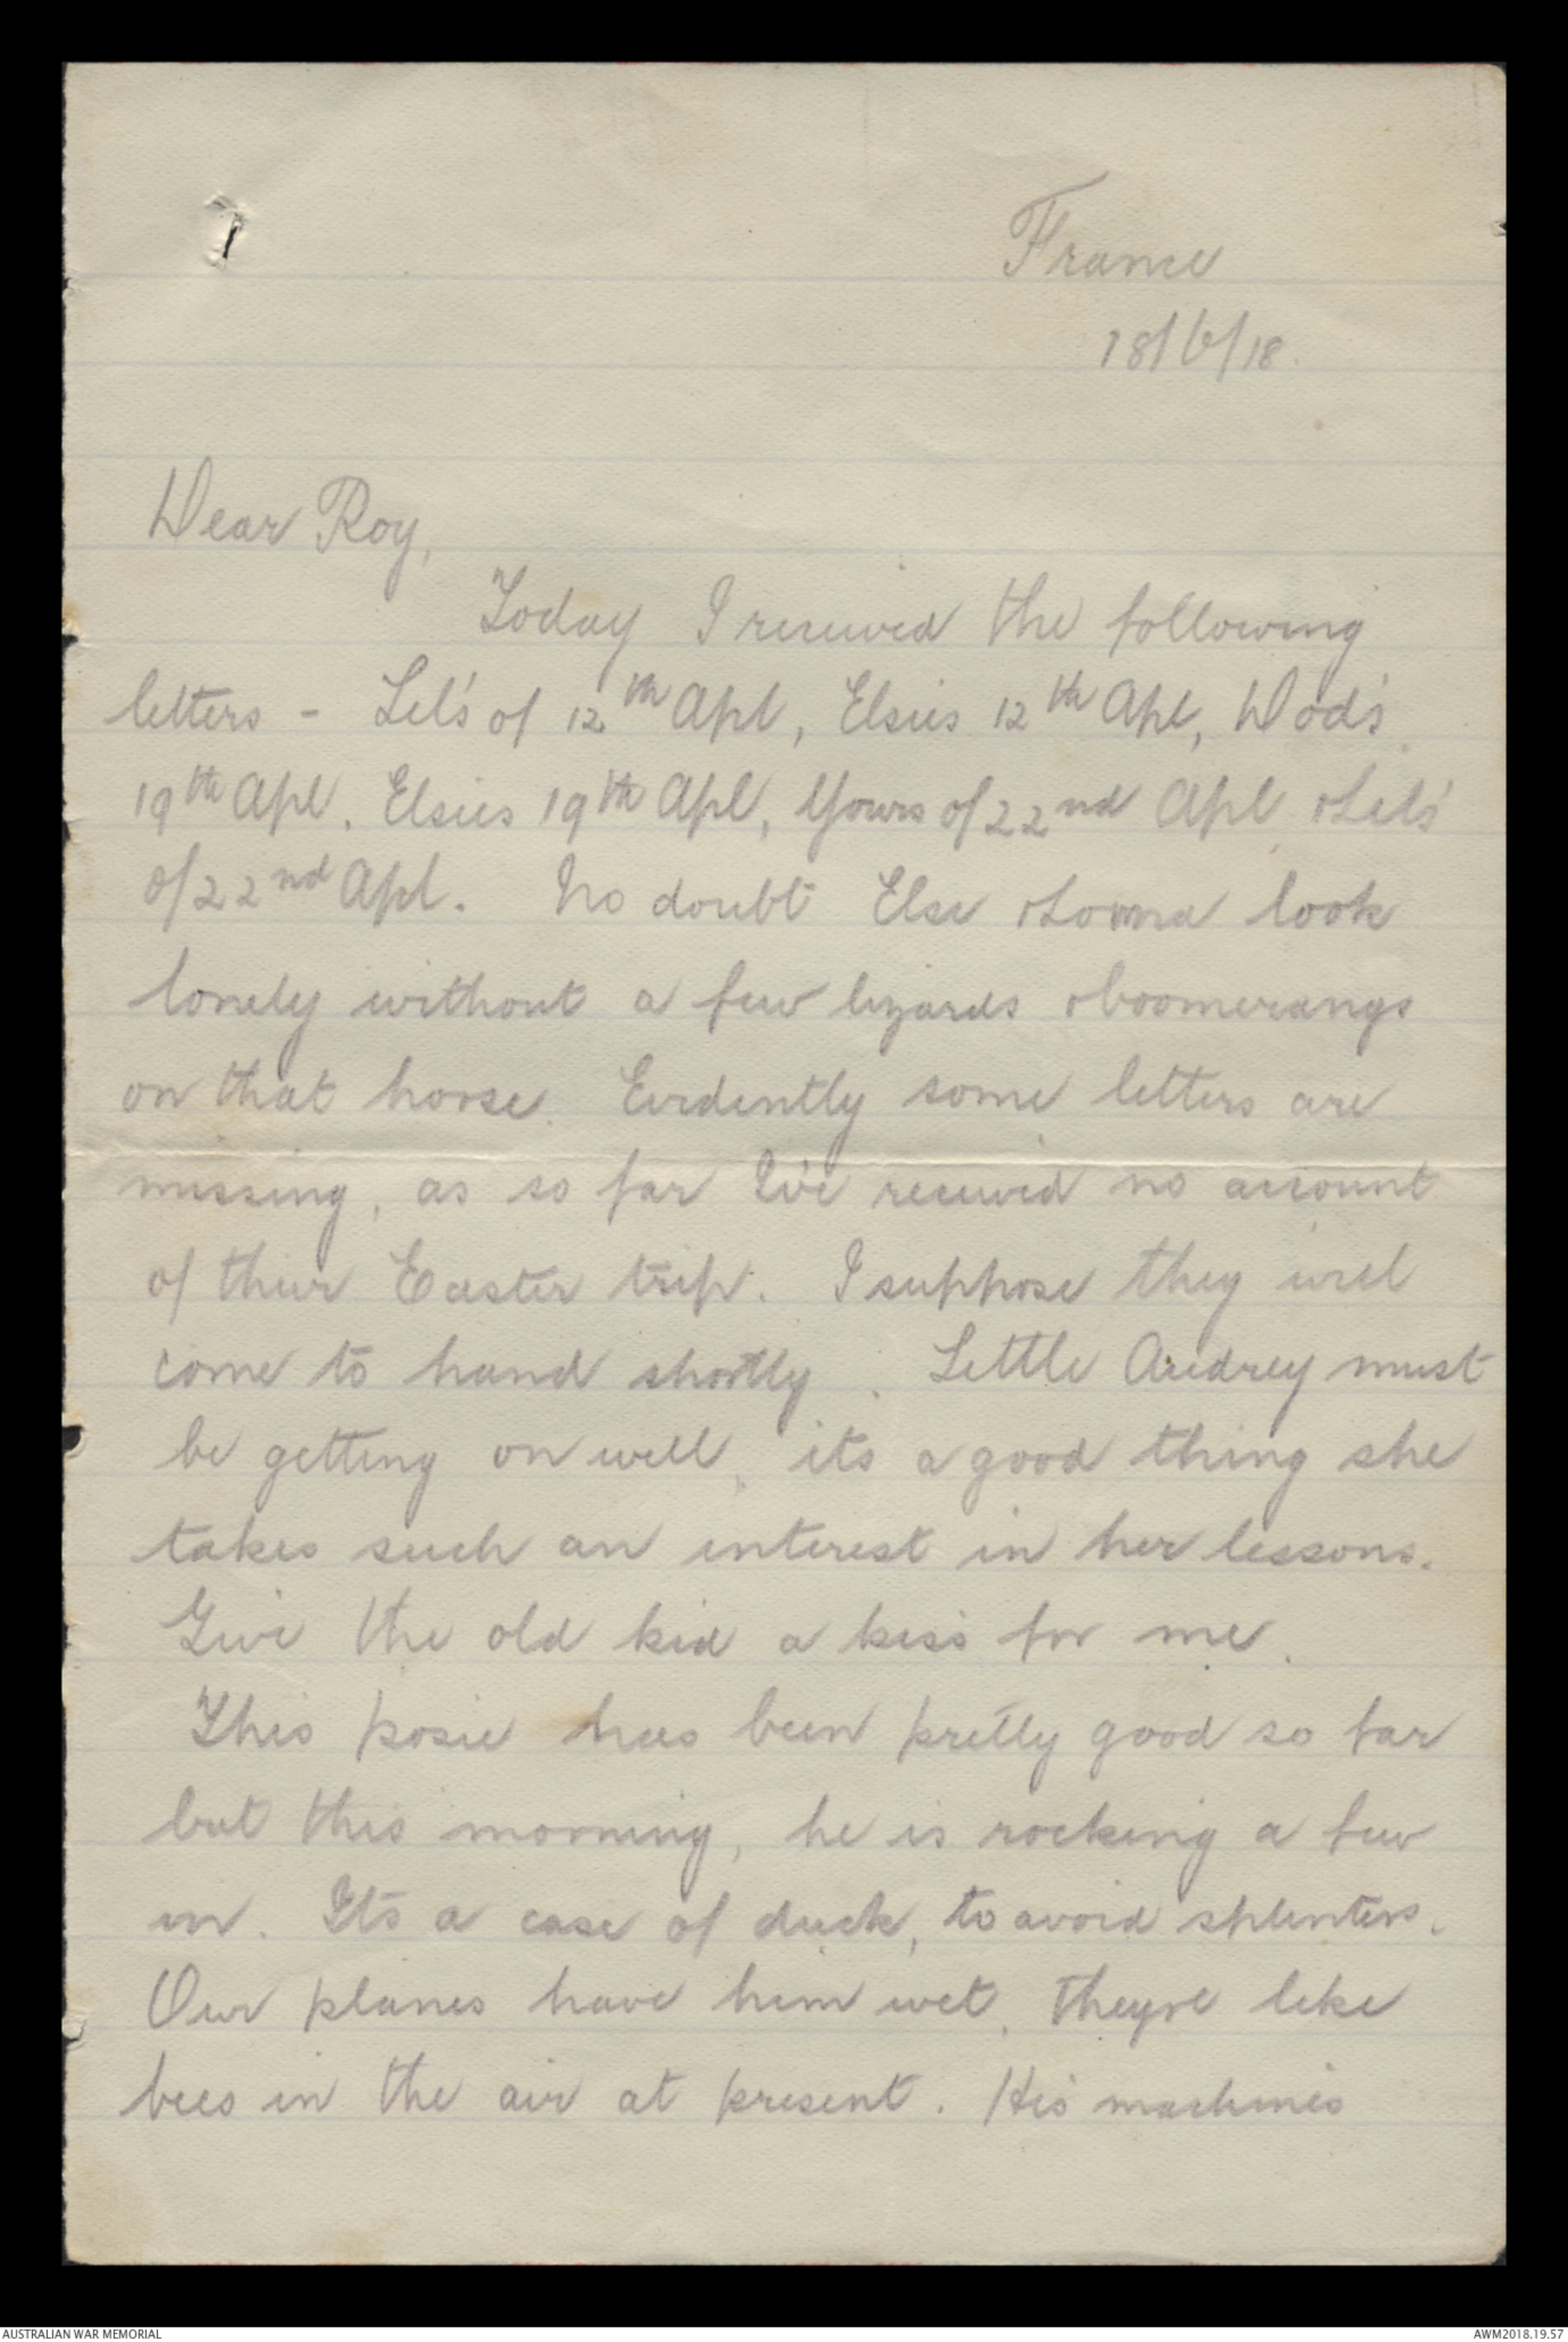 France
18/6/18.
Dear Roy,
Today I received the following
letters - Lil's of 12th Apl, Elsies 12th Apl, Dod's
19th Apl. Elsies 19th Apl, Yours of 22nd Apl & Lil's
of 22nd Apl. No doubt Else & Lorna look
lonely without a few lizards & boomerangs
on that horse. Evidently some letters are
missing, as so far I've received no account
of their Easter trip. I suppose they will
come to hand shortly. Little Audrey must
be getting on well, its a good thing she
takes such an interest in her lessons.
Give the old kid a kiss for me.
This posie has been pretty good so far
but this morning, he is rocking a few
in. It's a case of duck, to avoid splinters.
Our planes have him wet, they're like
bees in the air at present. His machines
AUSTRALIAN WAR MEMORIAL
AWM2018.19.57